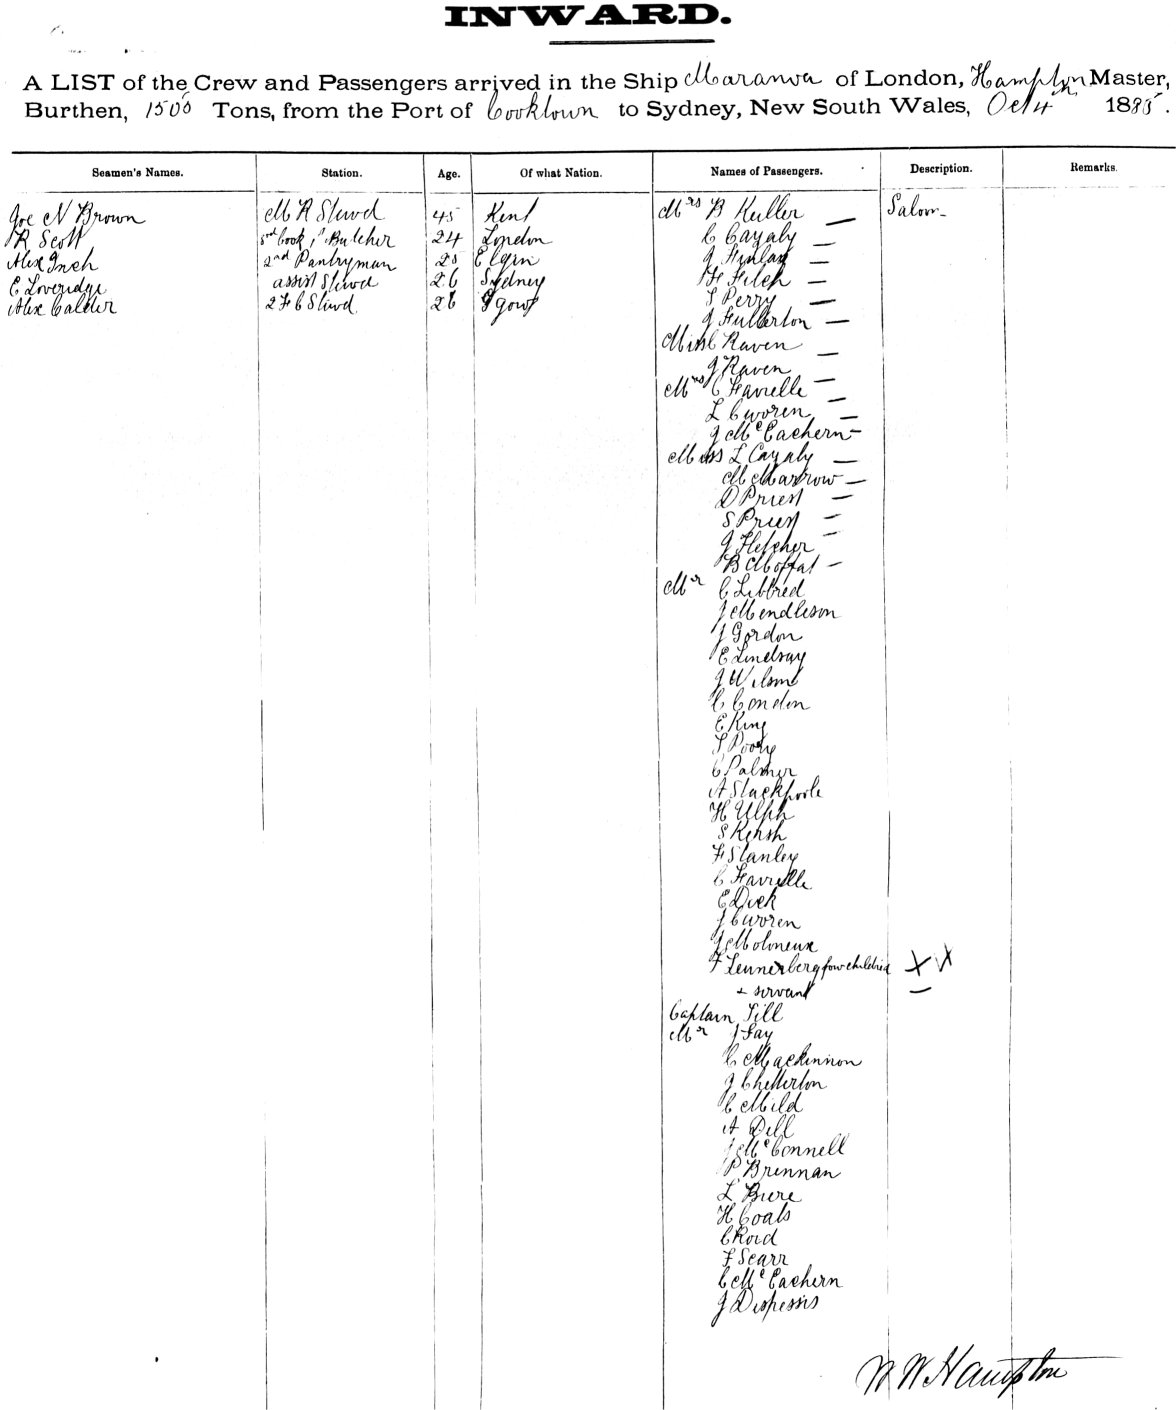 INWARD.
A LIST of the Crew and Passengers arrived in the Ship Maranoa of London, Hampton Master,
Burthen, 1500 Tons, from the Port of Cooktown to Sydney, New South Wales, Oct 4th 1885.
Seamen's Names. Station. Age. Of what Nation. Names of Passengers. Description. Remarks.
Joe N Brown M R Stwd 45 Kent Mrs B Keller — Saloon
R Scott 3rd Cook Butcher 24 London C Cayaly —
Alex Inch 2nd Pantryman Elgin J Finlay —
E Loveridge assist Stwd 26 Sydney H Fitch —
Alex Calder 2 F C Stwd 26 Ggow T Perry —
J Fullerton —
Miss C Raven —
J Raven —
Mrs C Favielle —
L Cworen —
J McEachern —
Miss L Cayaly —
M Marrow —
D Priest —
S Priest —
J Fletcher —
B Moffat —
Mr C Libbred
J Mendleson
J Gordon
E Lindsay
J Wilson
C Condon
E King
C Palmer
A Stackpoole
H Ulph
S Kersh
F Stanley
C Favielle
E Dick
J Cworen
J Molineux
F Lennerberg four children X X
+ servant —
Captain Till
Mr J Fay
C Mackinnon
J Chetterton
C Mild
A Dell
J McConnell
P Brennan
L Biere
H Coats
C Roid
F Scarr
C McEachern
J Despessis
W W Hampton